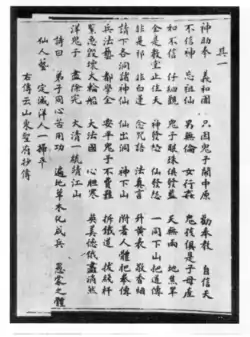 其一
神助拳 義和團 只因鬼子鬧中原 勸奉教 自信天
不信神 忘祖仙 男無倫 女行姦 鬼孩俱是子母產
如不信 仔細觀 鬼子眼珠俱發藍 天無雨 地焦旱
全是教堂止住天 神發怒 仙發怨 一同下山把道傳
非是邪 非白蓮 念咒語 法真言 升黃表 敬香煙
請下各洞諸神仙 仙出洞 神下山 附著人體把拳傳
兵法藝 都學全 要平鬼子不費難 拆鐵道 拔線杆
緊急毀壞火輪船 大法國 心膽寒 英美德俄盡消然
洋鬼子 盡除完 大清一統靖江山
詩曰 弟子同心苦用功 遍地草木化成兵 愚蒙之體
仙人藝 定滅洋人一掃平
右傳云山東聖府抄傳